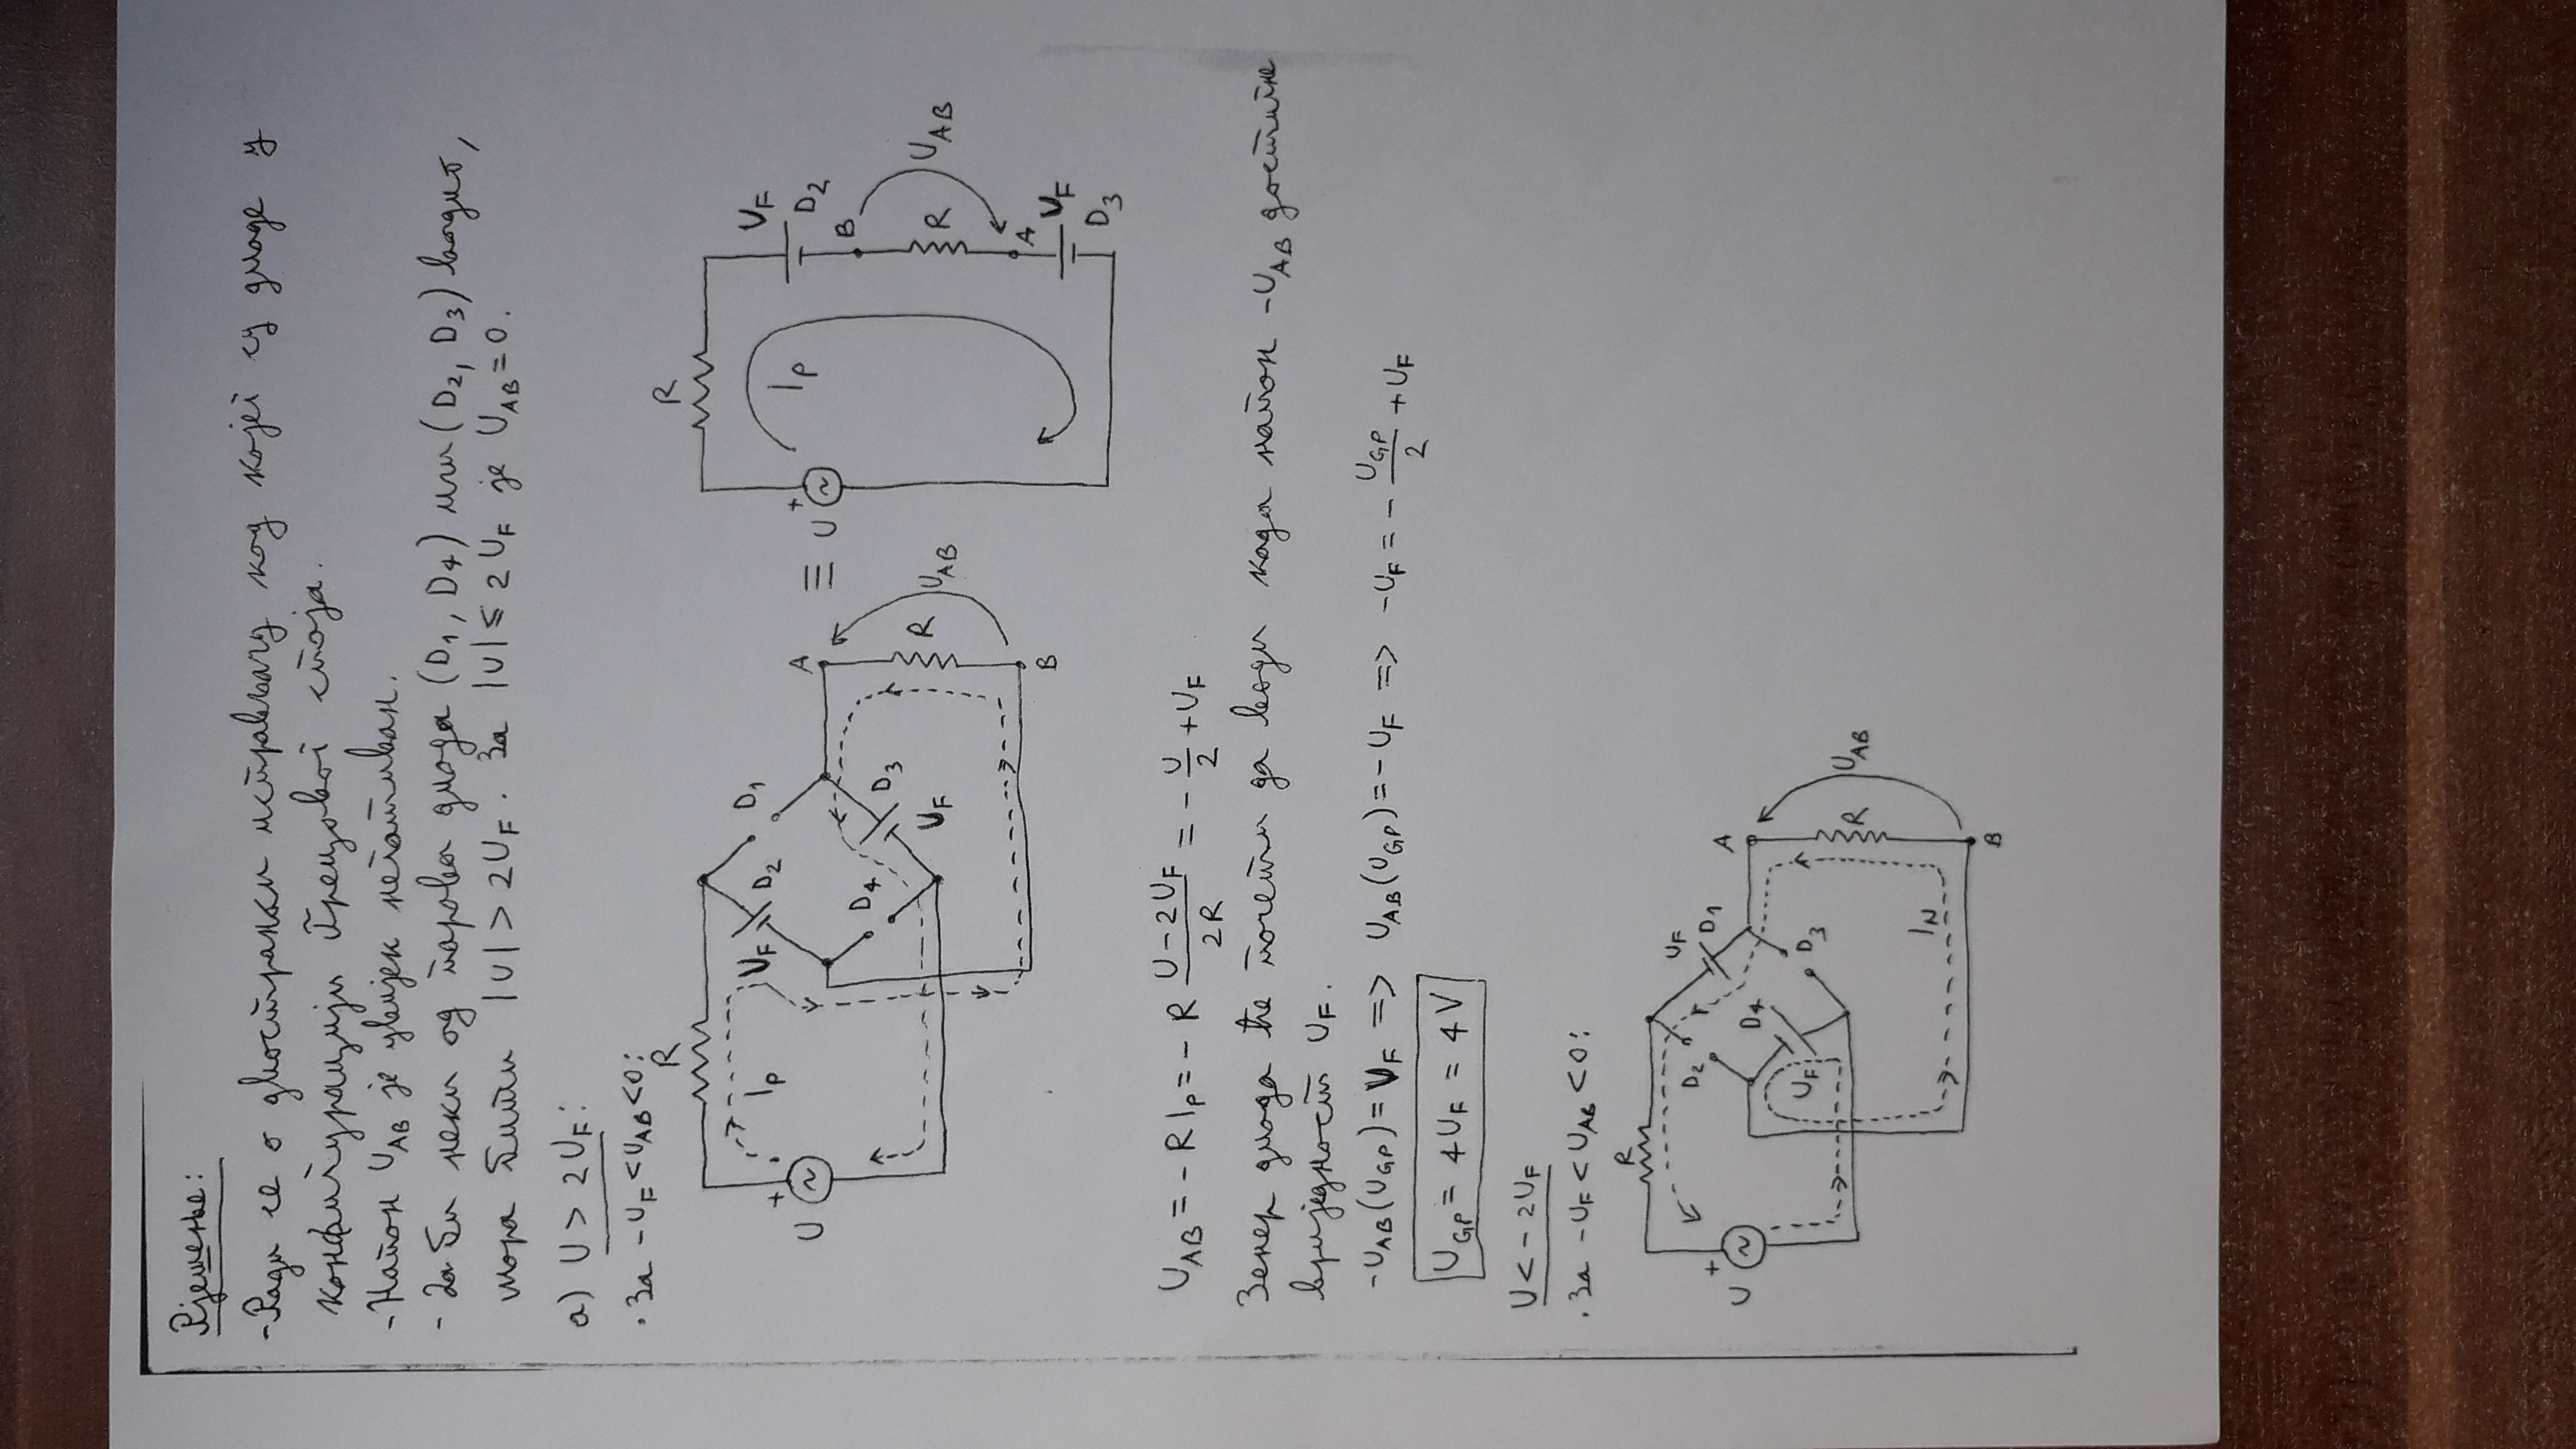 Рјешење:
- Ради се о двостраном исправљачу код којег су диоде у
конфигурацији Грецовог споја.
- Напон U_AB је увијек негативан.
- Да би неки од парова диода (D1, D4) или (D2, D3) водио,
мора бити |U| > 2U_F. За |U| ≤ 2U_F је U_AB = 0.
а) U > 2U_F:
· За -U_F < U_AB < 0:
R
I_P
U_F
D2
D1
+
U
A
D4
D3
U_F
R
U_AB
B
≡
R
+
U
I_P
U_F
D2
B
R
U_AB
A
U_F
D3
U_AB = - R I_P = - R (U - 2U_F)/(2R) = - U/2 + U_F
Зенер диода ће почети да води када напон -U_AB достигне
вриједност U_F.
-U_AB(U_GP) = U_F => U_AB(U_GP) = -U_F => -U_F = - U_GP/2 + U_F
U_GP = 4U_F = 4V
U < - 2U_F
· За -U_F < U_AB < 0:
R
D2
U_F
D1
+
U
D4
U_F
D3
A
R
U_AB
I_N
B